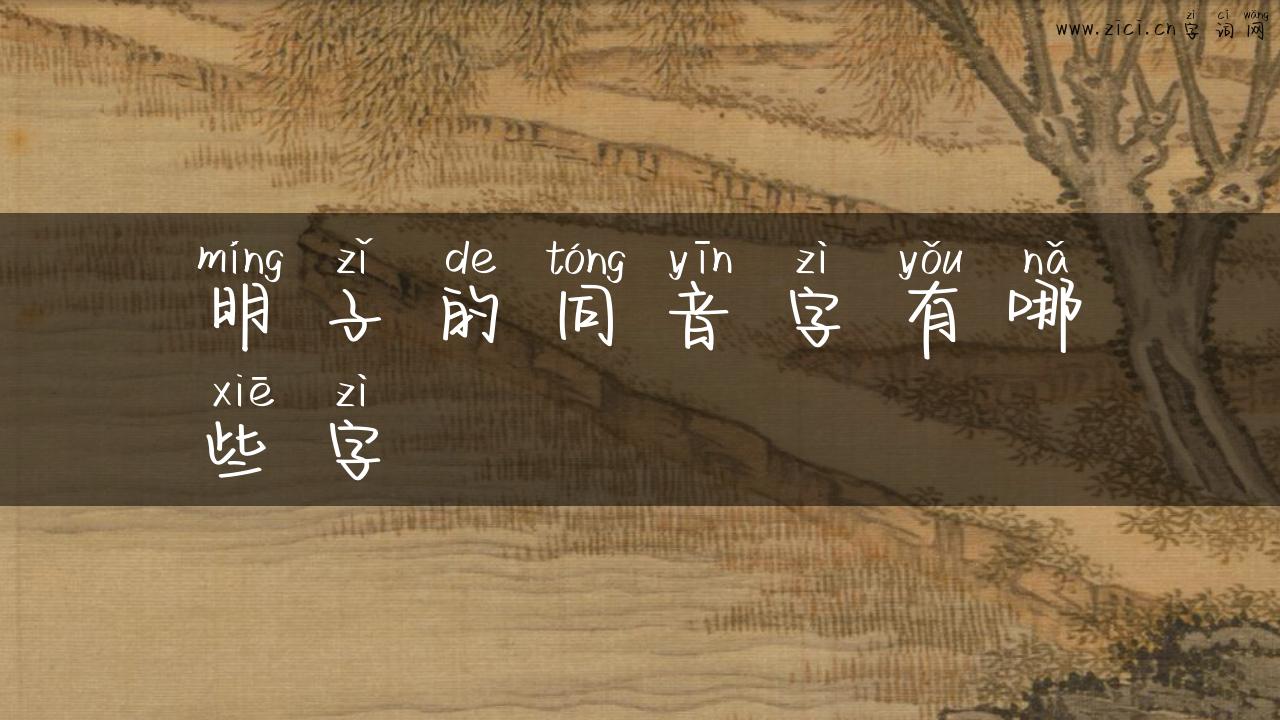 zì cí wǎng
www.zici.cn字词网
míng zǐ de tóng yīn zì yǒu nǎ
明子的同音字有哪
xiē zì
些字